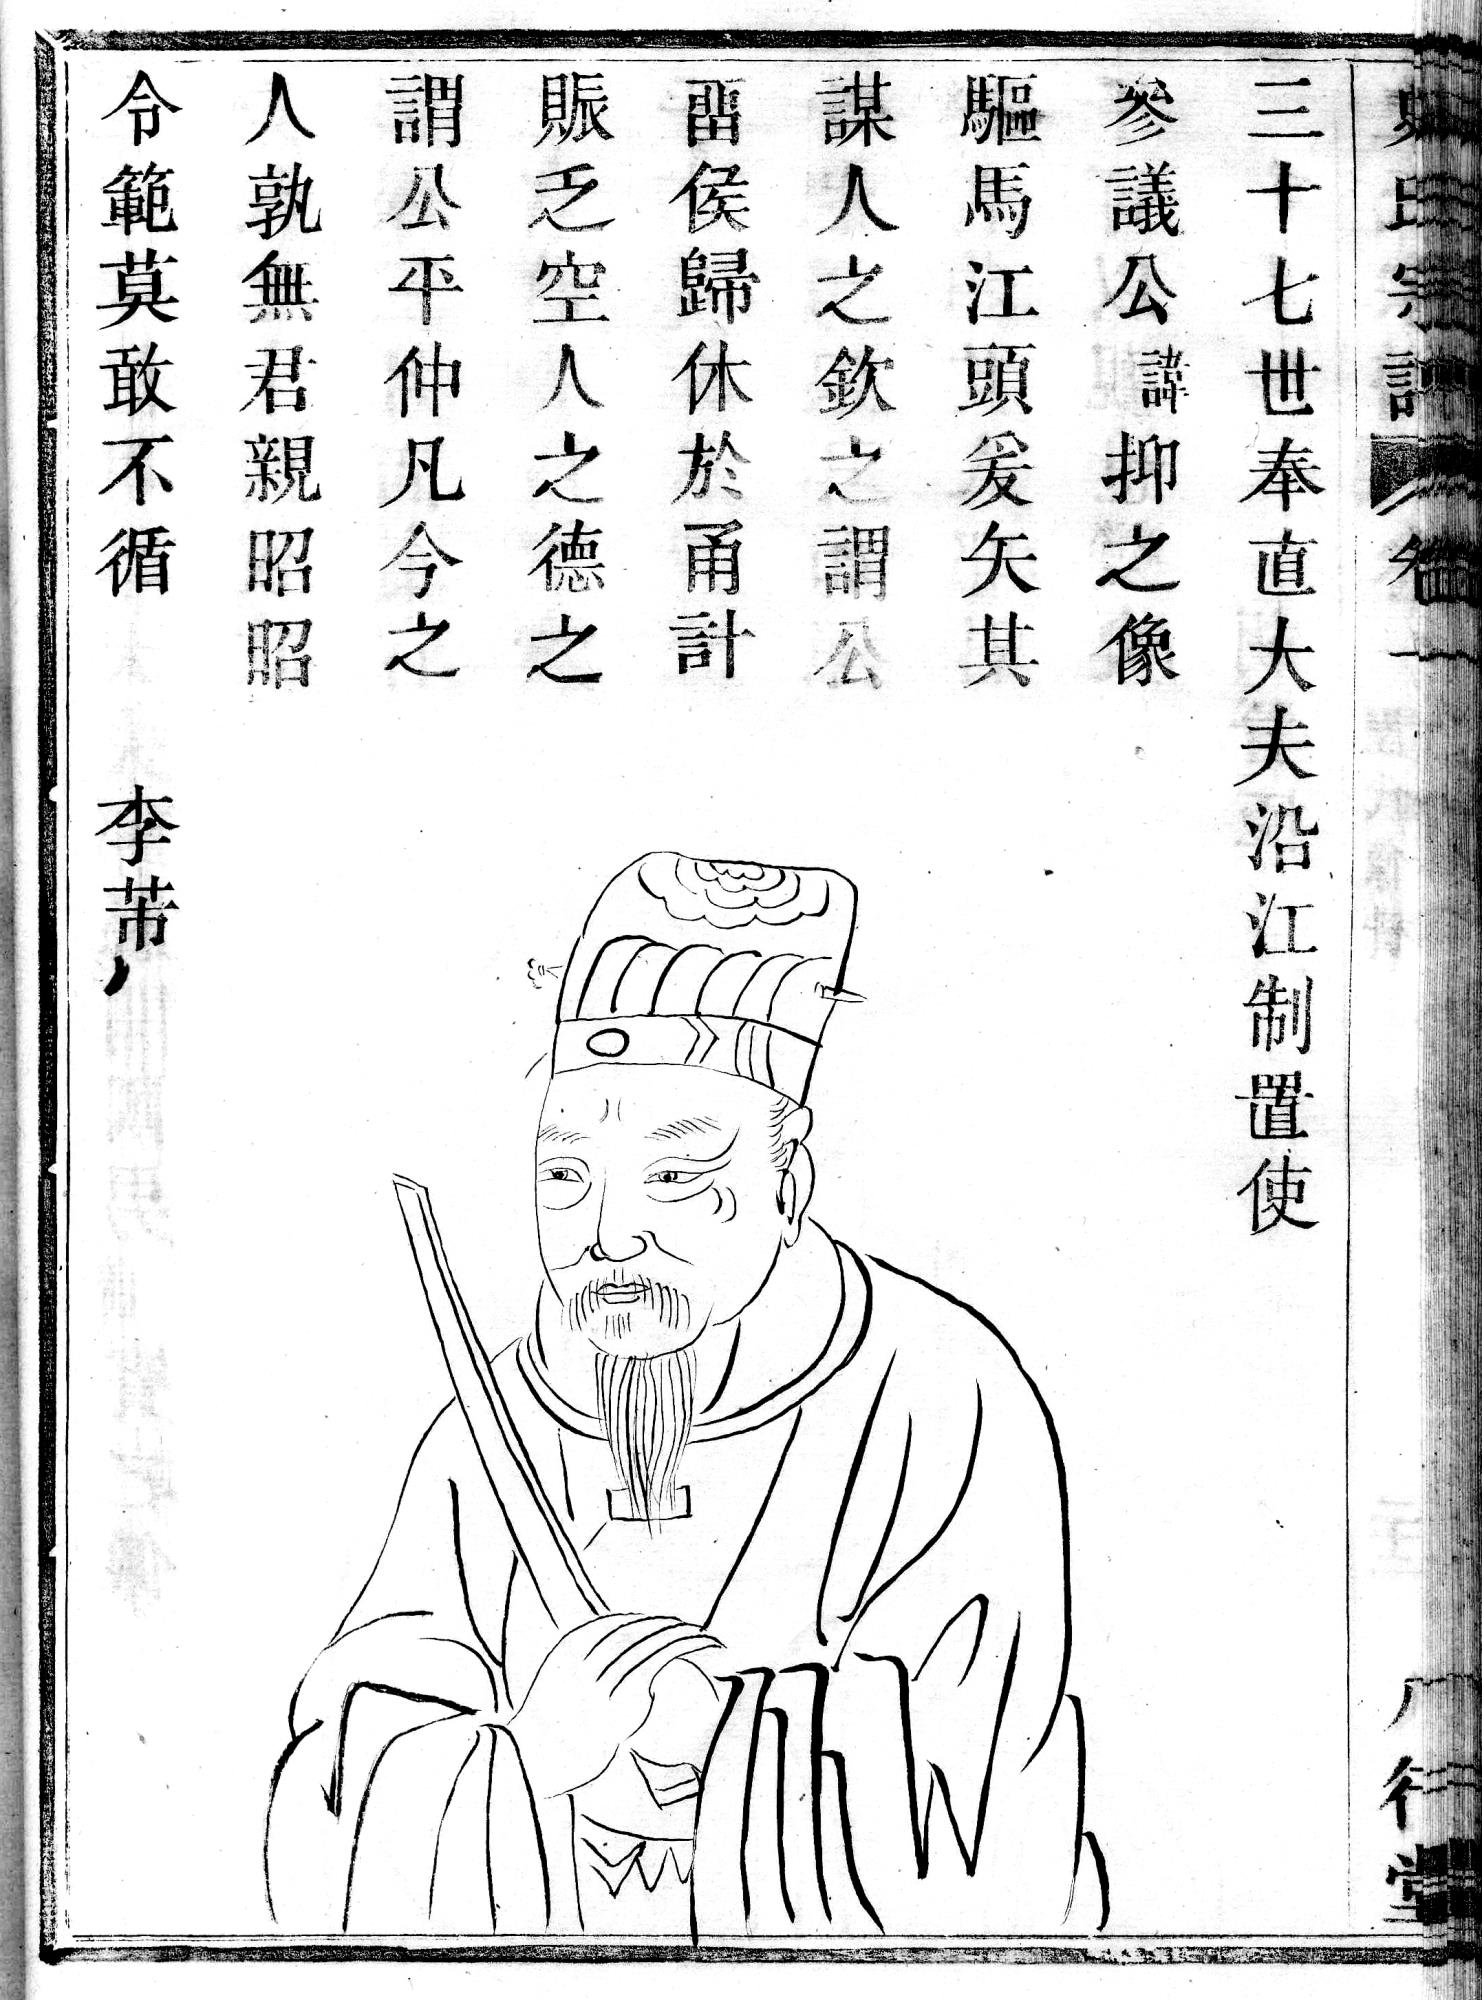 史氏宗譜 卷一 八行堂
三十七世奉直大夫沿江制置使
參議公諱抑之像
驅馬江頭爰矢其
謀人之欽之謂公
畱侯歸休於甬計
賑乏空人之德之
謂公平仲凡今之
人孰無君親昭昭
令範莫敢不循 李芾